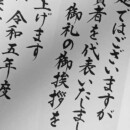 ではございますが
者を代表いたしまし
御礼の御挨拶を
上げます
令和五年度